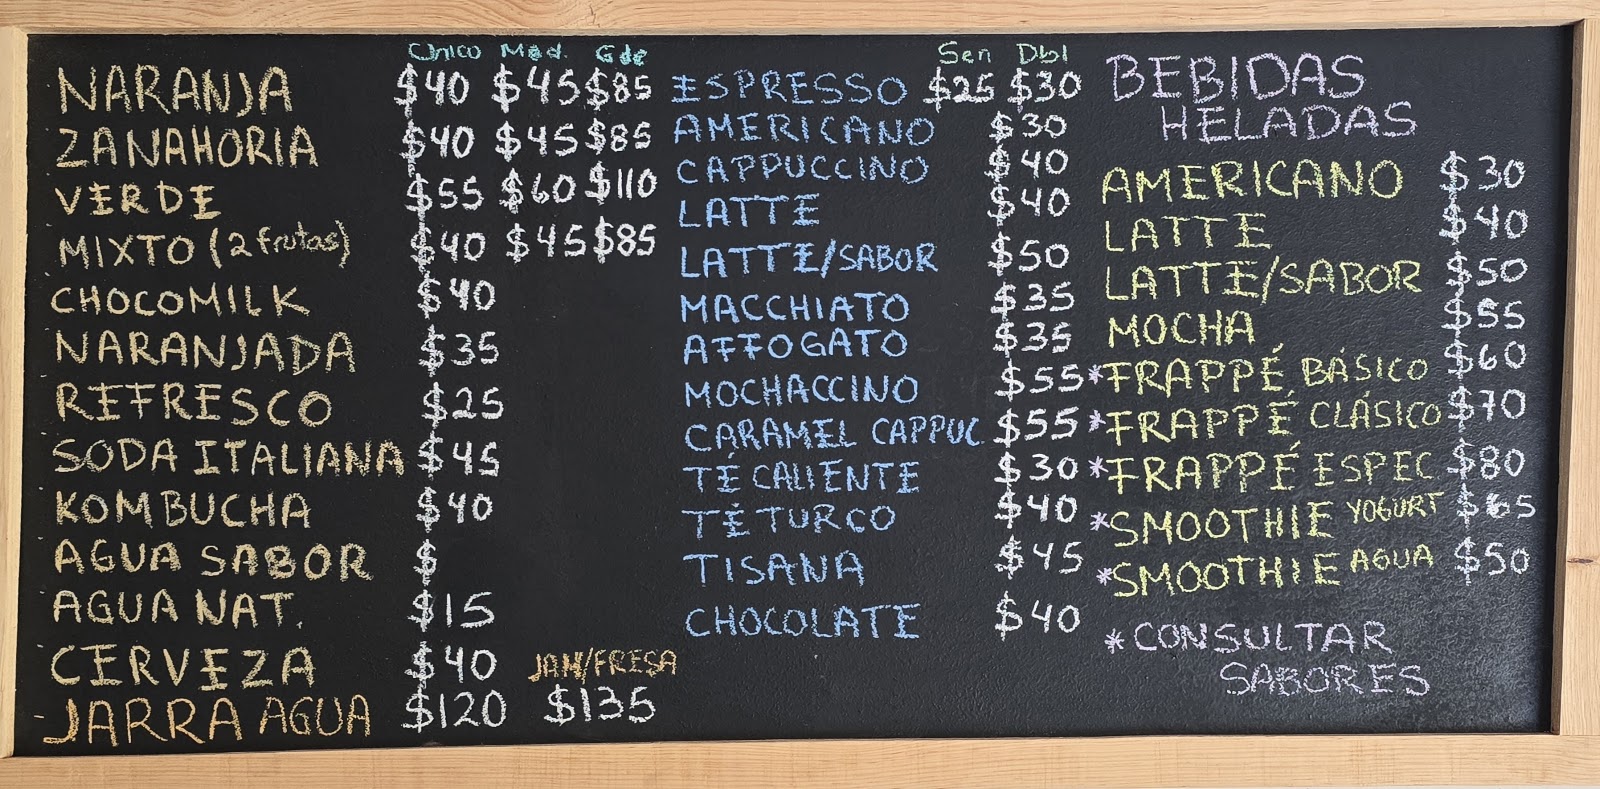 Chico Med. Gde
NARANJA $40 $45 $85
ZANAHORIA $40 $45 $85
VERDE $55 $60 $110
MIXTO (2 frutas) $40 $45 $85
CHOCOMILK $40
NARANJADA $35
REFRESCO $25
SODA ITALIANA $45
KOMBUCHA $40
AGUA SABOR $
AGUA NAT. $15
CERVEZA $40 JAM/FRESA
JARRA AGUA $120 $135
Sen Dbl
ESPRESSO $25 $30
AMERICANO $30
CAPPUCCINO $40
LATTE $40
LATTE/SABOR $50
MACCHIATO $35
AFFOGATO $35
MOCHACCINO $55
CARAMEL CAPPUC. $55
TÉ CALIENTE $30
TÉ TURCO $40
TISANA $45
CHOCOLATE $40
BEBIDAS
HELADAS
AMERICANO $30
LATTE $40
LATTE/SABOR $50
MOCHA $55
*FRAPPÉ BÁSICO $60
*FRAPPÉ CLÁSICO $70
*FRAPPÉ ESPEC. $80
*SMOOTHIE YOGURT $65
*SMOOTHIE AGUA $50
*CONSULTAR
SABORES